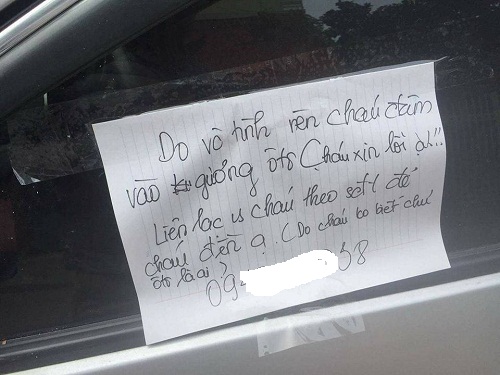 Do vô tình nên cháu đâm
vào gương ôtô (cháu xin lỗi ạ!!
Liên lạc vs cháu theo số đt để
cháu đền ạ. (Do cháu ko biết chủ
ôtô là ai)
09 68